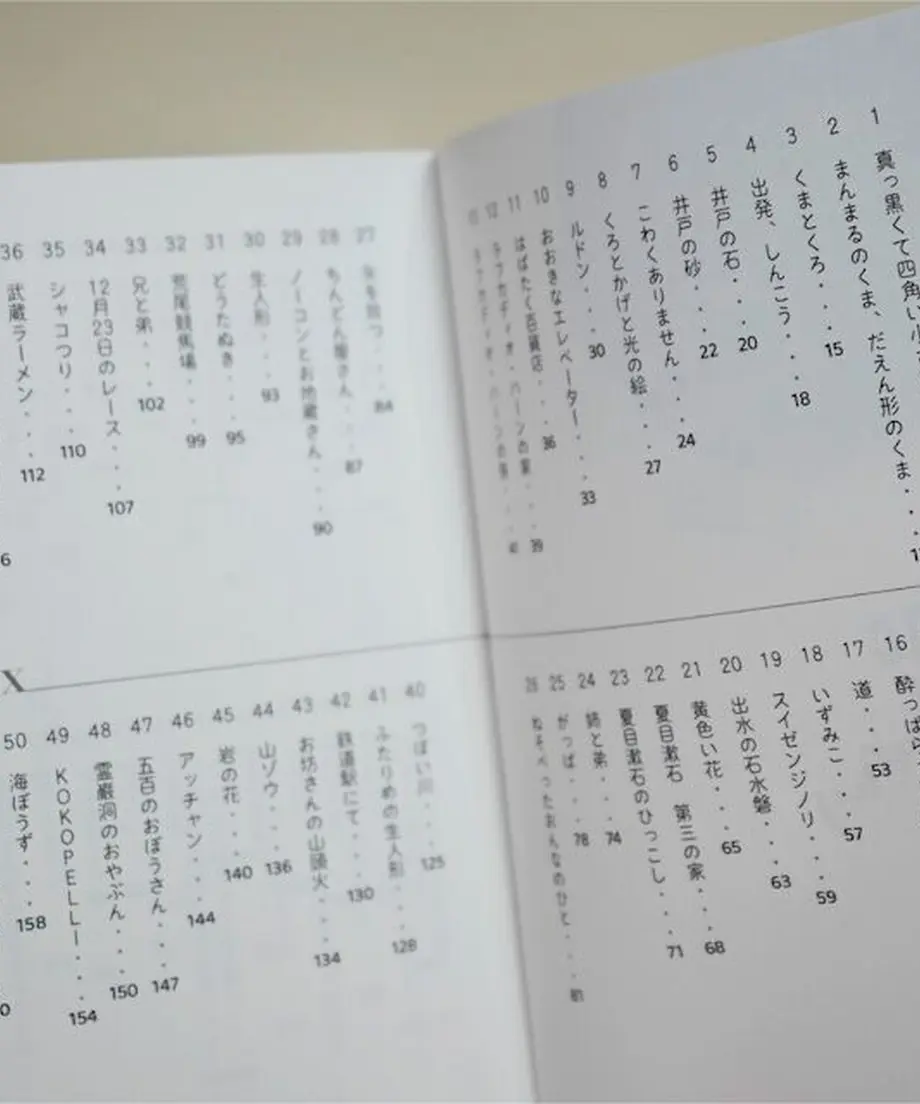 1 真っ黒くて四角い小
2 まんまるのくま、だえん形のくま・・・1
3 くまとくろ・・・15
4 出発、しんこう・・・18
5 井戸の石・・・20
6 井戸の砂・・・22
7 こわくありません・・・24
8 くろとかげと光の絵・・・27
9 ルドン・・・30
10 おおきなエレベーター・・・33
11 はばたく百貨店・・・36
12 ラフカディオ・ハーンの家・・・39
16 酔っぱら
17 道・・・53
18 いずみこ・・・57
19 スイゼンジノリ・・・59
20 出水の石水磐・・・63
21 黄色い花・・・65
22 夏目漱石 第三の家・・・68
23 夏目漱石のひっこし・・・71
24 姉と弟・・・74
25 がっぱ・・・78
26 ねそべったおんなのひと・・・81
27 84
28 ちんどん屋さん・・・87
29 ノーコンとお地蔵さん・・・90
30 生人形・・・93
31 どうたぬき・・・95
32 荒尾競馬場・・・99
33 兄と弟・・・102
34 12月23日のレース・・・107
35 シャコつり・・・110
36 武蔵ラーメン・・・112
6
X
40 つぼい川・・・125
41 ふたりめの生人形・・・128
42 鉄道駅にて・・・130
43 お坊さんの山頭火・・・134
44 山ゾウ・・・136
45 岩の花・・・140
46 アッチャン・・・144
47 五百のおぼうさん・・・147
48 霊巖洞のおやぶん・・・150
49 KOKOPELLI・・・154
50 海ぼうず・・・158
0